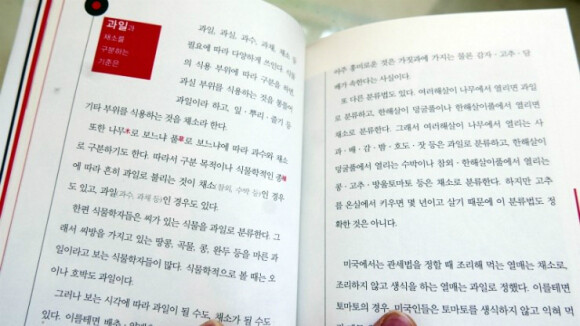 과일과
채소를
구분하는
기준은
과일, 과실, 과수, 과채, 채소 등
필요에 따라 다양하게 쓰인다. 식물
의 식용 부위에 따라 구분을 하면
과실 부위를 식용하는 것을 통틀어
과일이라 하고, 잎·뿌리·줄기 등
기타 부위를 식용하는 것을 채소라 한다.
또한 나무木로 보느냐 풀草로 보느냐에 따라 과수와 채소
로 구분하기도 한다. 따라서 구분 목적이나 식물학적인 종種
에 따라 흔히 과일로 불리는 것이 채소(참외, 수박 등)인 경우
도 있고, 과일(과수, 과채 등)인 경우도 있다.
한편 식물학자들은 씨가 있는 식물을 과일로 분류한다. 그
래서 씨방을 가지고 있는 땅콩, 곡물, 콩, 완두 등을 마른 과
일이라고 보는 식물학자들이 많다. 식물학적으로 볼 때는 오
이나 호박도 과일이다.
그러나 보는 시각에 따라 과일이 될 수도, 채소가 될 수도
있다. 이를테면 배추·양배
아주 흥미로운 것은 가짓과에 가지는 물론 감자·고추·담
배가 속한다는 사실이다.
또 다른 분류법도 있다. 여러해살이 나무에서 열리면 과일
로 분류하고, 한해살이 덩굴풀이나 한해살이풀에서 열리면
채소로 분류한다. 그래서 여러해살이 나무에서 열리는 사
과·배·감·밤·호도·잣 등은 과일로 분류하고, 한해살이
덩굴풀에서 열리는 수박이나 참외·한해살이풀에서 열리는
콩·고추·방울토마토 등은 채소로 분류한다. 하지만 고추
를 온실에서 키우면 몇 년이고 살기 때문에 이 분류법도 정
확한 것은 아니다.
미국에서는 관세법을 정할 때 조리해 먹는 열매는 채소로,
조리하지 않고 생식을 하는 열매는 과일로 정했다. 이를테면
토마토의 경우, 미국인들은 토마토를 생식하지 않고 익혀 먹